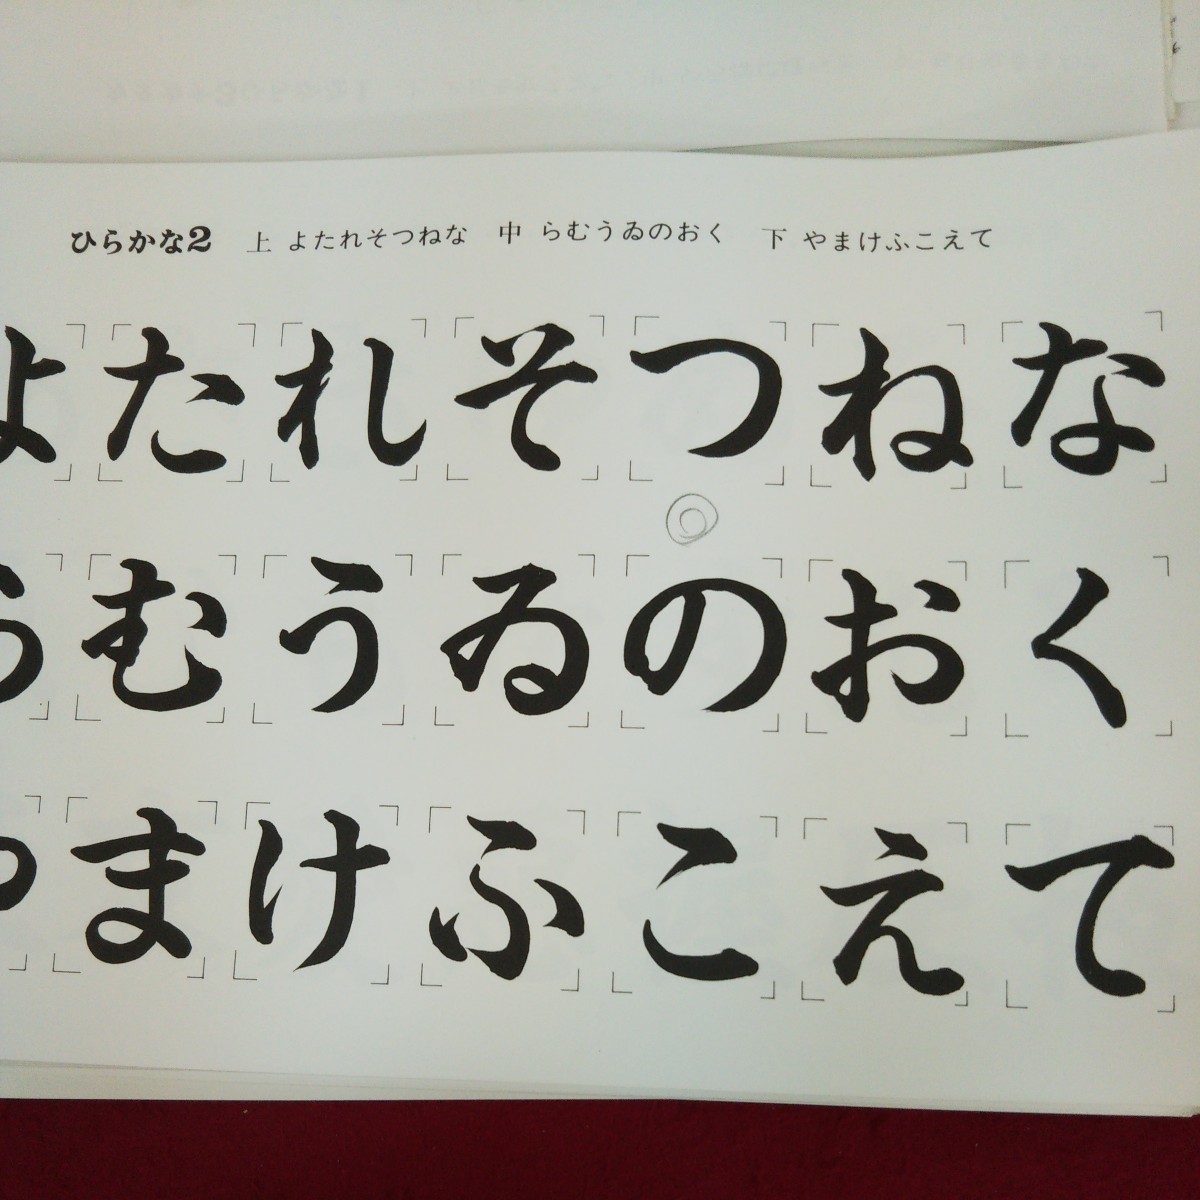 ひらかな2 上 よたれそつねな 中 らむうゐのおく 下 やまけふこえて
よたれそつねな
らむうゐのおく
やまけふこえて